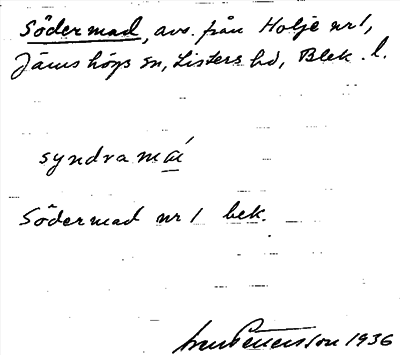 Södermad, avs. från Holje nr 1,
Jämshögs sn, Listers hd, Blek. l.
syndra maí
Södermad nr 1 bek.
1936